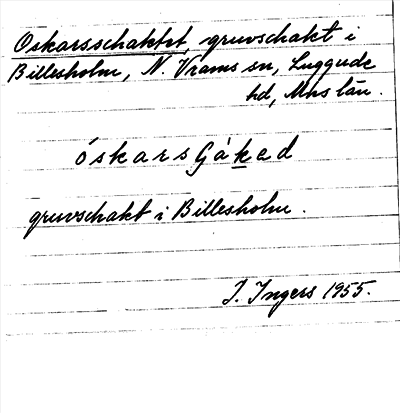 Oskarsschaktet, gruvschakt i
Billesholm, N. Vrams sn, Luggude
hd, Mhs län.
óskarsGákad
gruvschakt i Billesholm.
I. Ingers 1955.